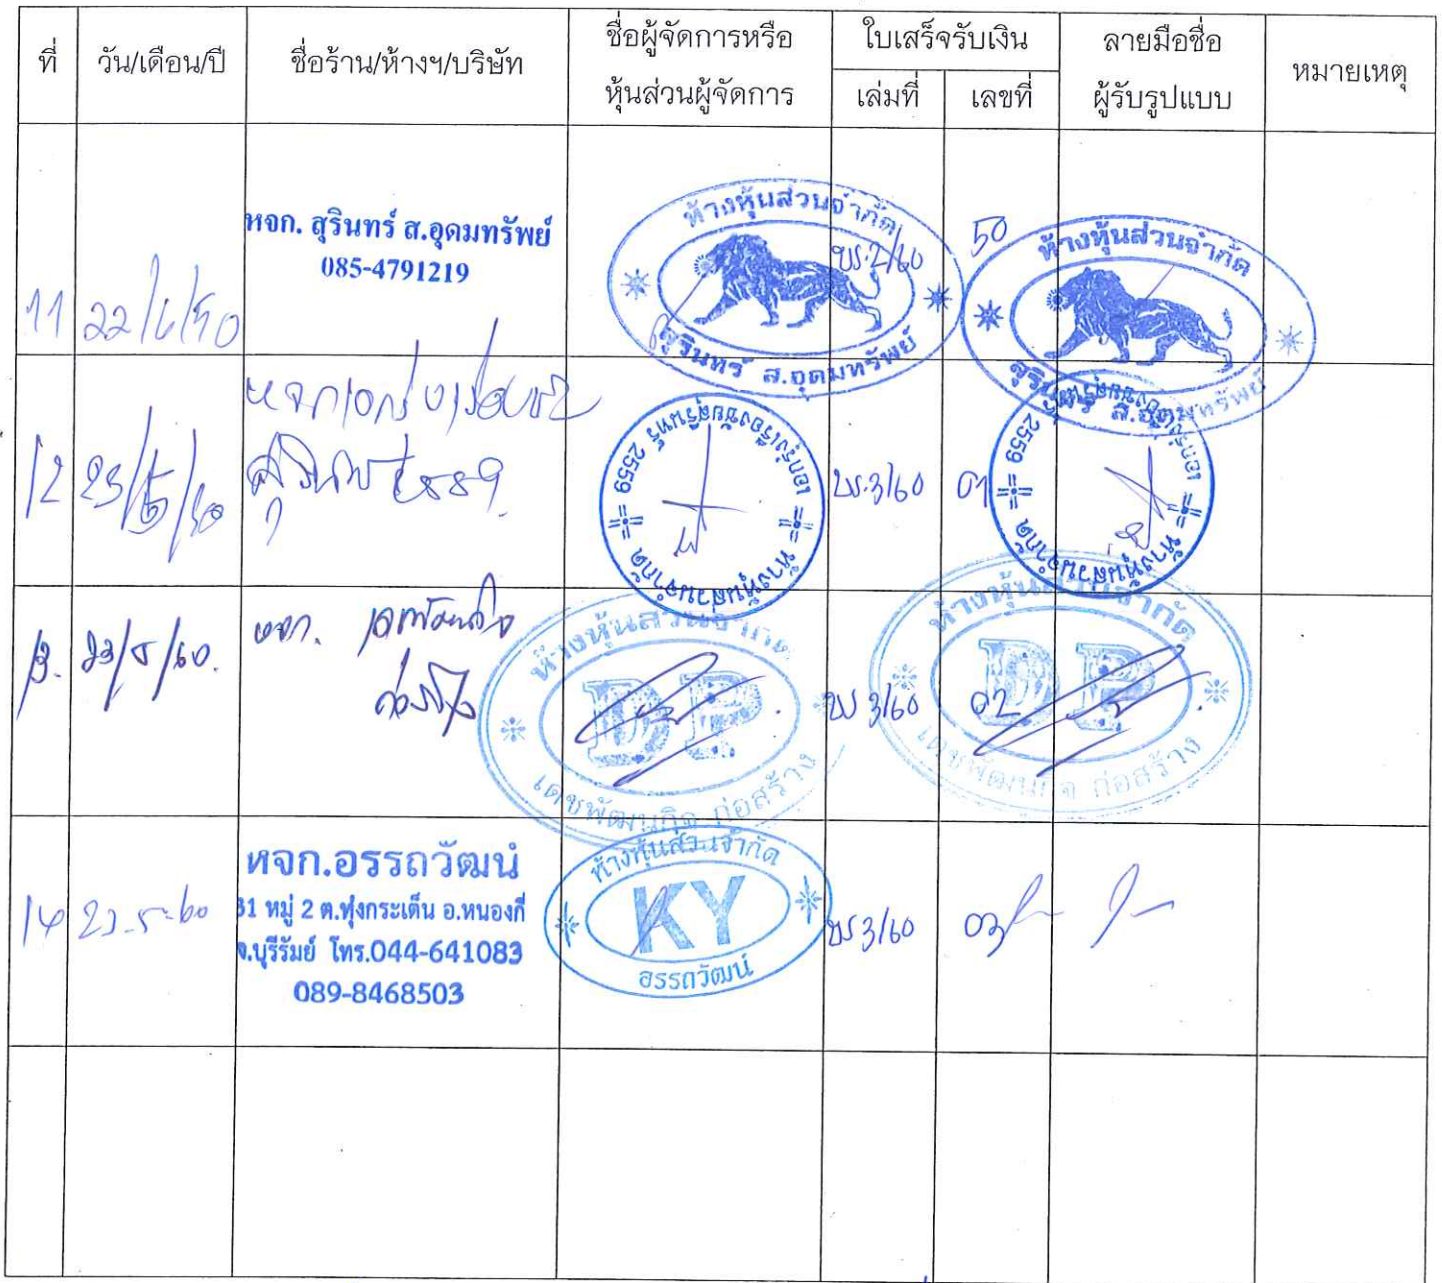 ที่
วัน/เดือน/ปี
ชื่อร้าน/ห้างฯ/บริษัท
ชื่อผู้จัดการหรือ
หุ้นส่วนผู้จัดการ
ใบเสร็จรับเงิน
เล่มที่
เลขที่
ลายมือชื่อ
ผู้รับรูปแบบ
หมายเหตุ
11
หจก. สุรินทร์ ส.อุดมทรัพย์
085-4791219
ห้างหุ้นส่วนจำกัด
สุรินทร์ ส.อุดมทรัพย์
ขร.2/60
50
ห้างหุ้นส่วนจำกัด
สุรินทร์ ส.อุดมทรัพย์
12
ห้างหุ้นส่วนจำกัด
เอกรุ่งเรืองชัยสุรินทร์ 2559
ขร.3/60
01
ห้างหุ้นส่วนจำกัด
2559
13.
23/5/60.
หจก. เดชพัฒนกิจ
ก่อสร้าง
ห้างหุ้นส่วนจำกัด
DP
เดชพัฒนกิจ ก่อสร้าง
ขร 3/60
02
ห้างหุ้นส่วนจำกัด
DP
เดชพัฒนกิจ ก่อสร้าง
14
23-5-60
หจก.อรรถวัฒน์
31 หมู่ 2 ต.ทุ่งกระเต็น อ.หนองกี่
จ.บุรีรัมย์ โทร.044-641083
089-8468503
ห้างหุ้นส่วนจำกัด
KY
อรรถวัฒน์
ขร 3/60
03